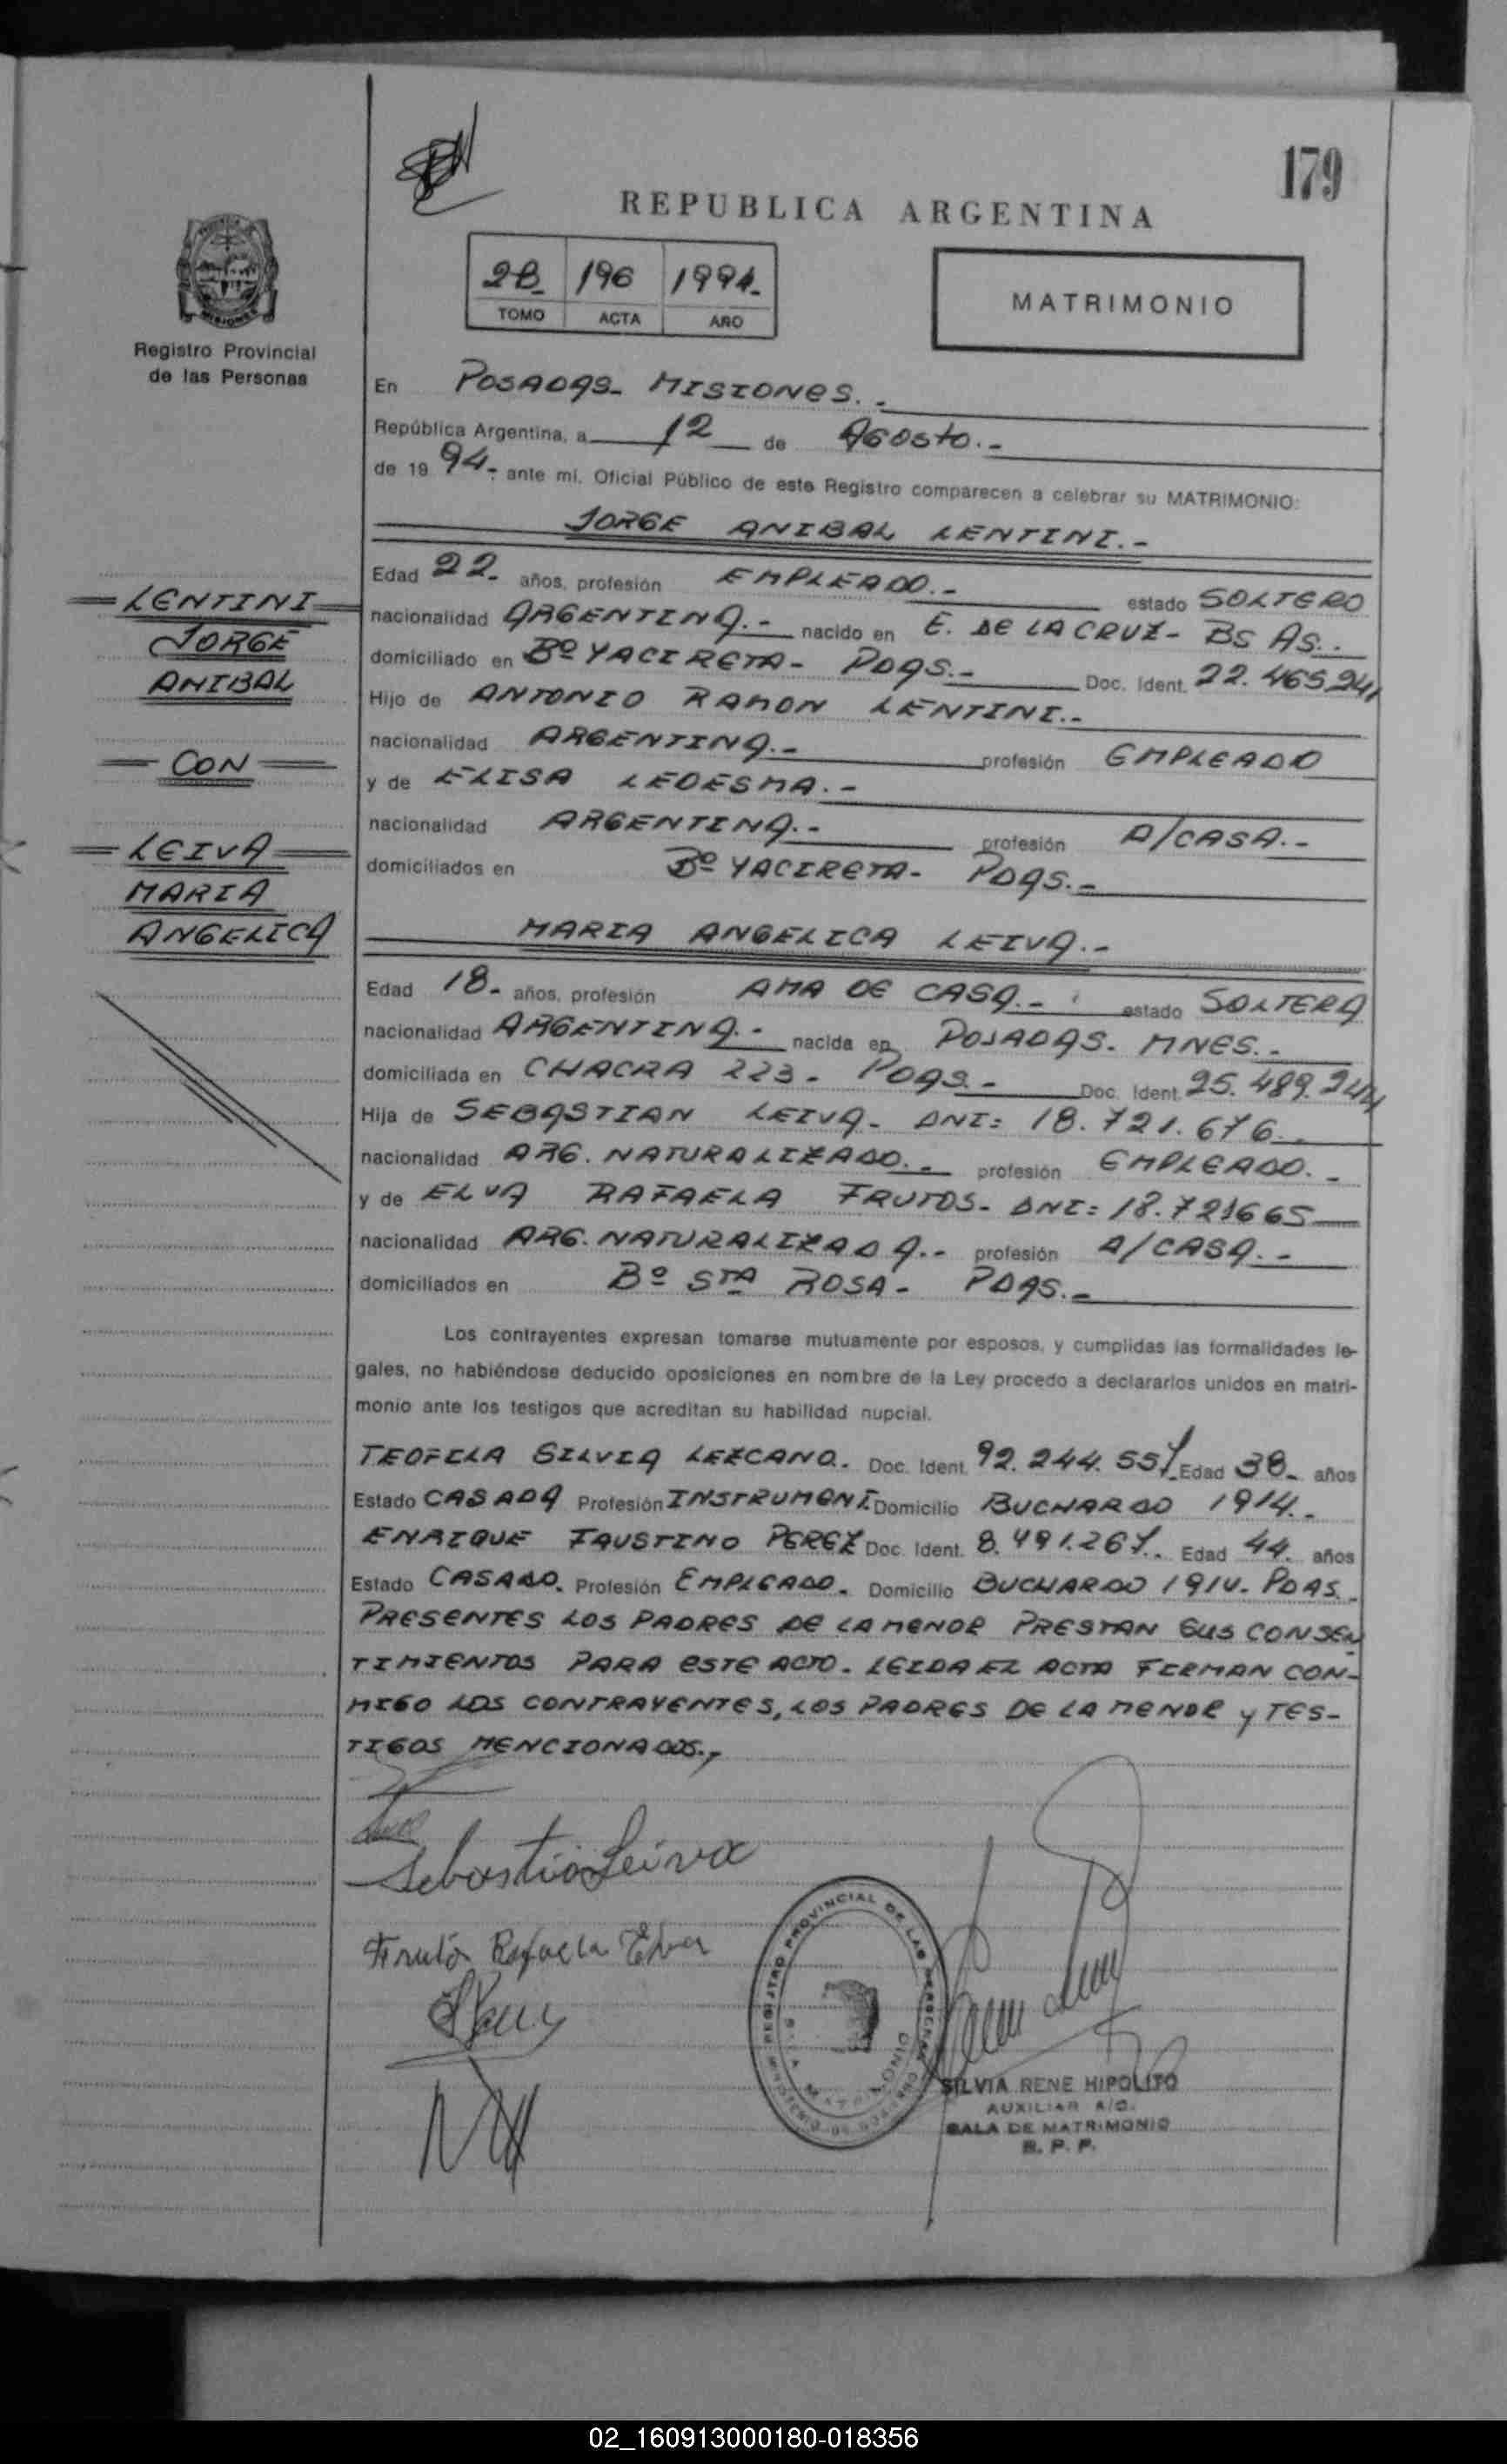 179
REPUBLICA ARGENTINA
2B 196 1994.
TOMO ACTA AÑO
MATRIMONIO
Registro Provincial
de las Personas
En POSADAS- MISIONES.-
República Argentina, a 12 de AGOSTO.-
de 19 94- ante mi, Oficial Público de este Registro comparecen a celebrar su MATRIMONIO:
JORGE ANIBAL LENTINI.-
Edad 22- años, profesión EMPLEADO.- estado SOLTERO
nacionalidad ARGENTINA.- nacido en E. DE LA CRUZ- BS AS..
domiciliado en Bº YACIRETA- PDAS.- Doc. Ident. 22.465.241
Hijo de ANTONIO RAMON LENTINI.-
nacionalidad ARGENTINA.- profesión EMPLEADO
y de ELISA LEDESMA.-
nacionalidad ARGENTINA.- profesión A/CASA.-
domiciliados en Bº YACIRETA- PDAS.-
LENTINI
JORGE
ANIBAL
CON
LEIVA
MARIA
ANGELICA
MARIA ANGELICA LEIVA.-
Edad 18- años, profesión AMA DE CASA.- estado SOLTERA
nacionalidad ARGENTINA.- nacida en POSADAS- MNES.-
domiciliada en CHACRA 223- PDAS.- Doc. Ident. 25.489.244
Hija de SEBASTIAN LEIVA- DNI: 18.721.676.-
nacionalidad ARG. NATURALIZADO.- profesión EMPLEADO.-
y de ELVA RAFAELA FRUTOS- DNI: 18.721665
nacionalidad ARG. NATURALIZADA.- profesión A/CASA.-
domiciliados en Bº STA ROSA- PDAS.-
Los contrayentes expresan tomarse mutuamente por esposos, y cumplidas las formalidades le-
gales, no habiéndose deducido oposiciones en nombre de la Ley procedo a declararlos unidos en matri-
monio ante los testigos que acreditan su habilidad nupcial.
TEOFILA SILVIA LEZCANO. Doc. Ident. 92.244.551 Edad 38- años
Estado CASADA Profesión INSTRUMENT. Domicilio BUCHARDO 1914.-
ENRIQUE FAUSTINO PEREZ Doc. Ident. 8.491.267.. Edad 44. años
Estado CASADO. Profesión EMPLEADO. Domicilio BUCHARDO 1914. PDAS.
PRESENTES LOS PADRES DE LA MENOR PRESTAN SUS CONSEN
TIMIENTOS PARA ESTE ACTO. LEIDA EL ACTA FIRMAN CON-
MIGO LOS CONTRAYENTES, LOS PADRES DE LA MENOR y TES-
TIGOS MENCIONADOS.,
Sebastia Leiva
Frutos Rafaela Elva
REGISTRO PROVINCIAL DE LAS PERSONAS
MINISTERIO DE GOBIERNO
SALA MATRIMONIO
SILVIA RENE HIPOLITO
AUXILIAR A/C.
SALA DE MATRIMONIO
R. P. P.
02_160913000180-018356